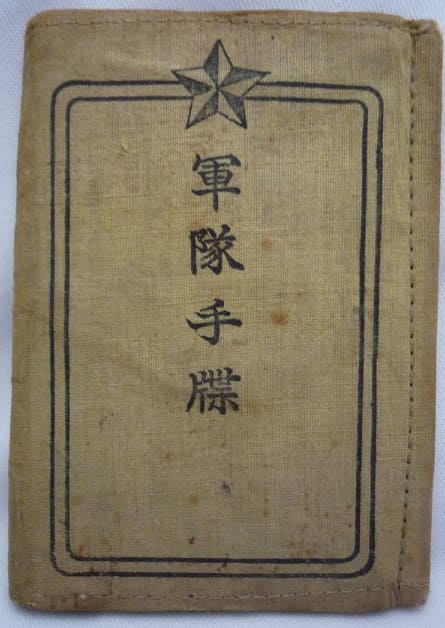 軍隊手牒